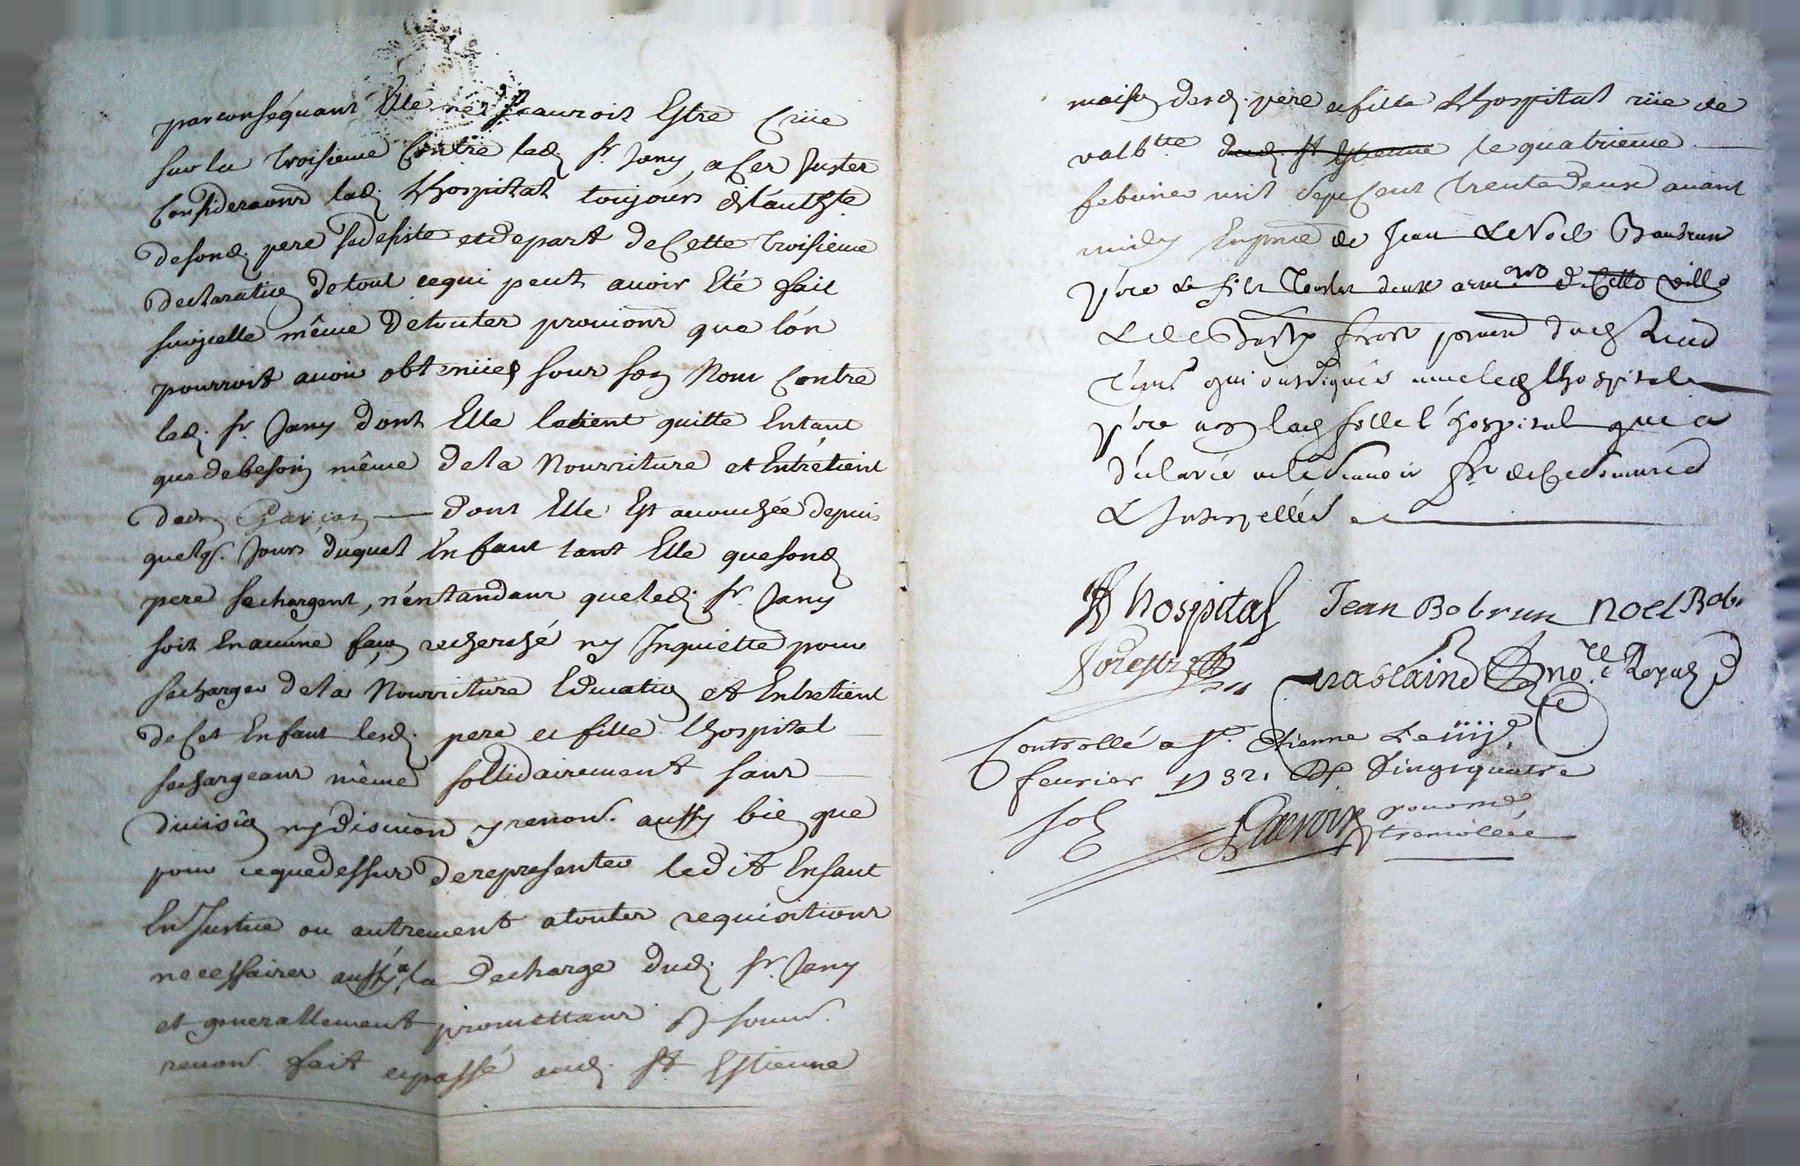 par conséquant Elle ne scauroit Estre Crüe
sur la troisieme Contre led. Sr. Jany, a ces Justes
Considerations lad. Lhospital toujours de l'autte.
de sond. pere se desiste et depart de Cette troisieme
declaration de tout ce qui peut avoir Eté fait
sur jcelle même de toutes provisions que l'ón
pourroit avoir obtenües sour son Nom Contre
led. Sr. Jany dont Elle le tient quitte En tant
que de besoin même de la Nourriture et Entretient
dud. Garçon dont Elle Est accouchée depuis
quelqs. Jours duquel Enfant tant Elle que sond.
pere se chargent, n'entandans que led. Sr. Jany
soit En aucune façon recherché ny Inquietté pour
se charger de la Nourriture Education et Entretient
de Cet Enfant lesd. pere et fille Lhospital
se chargeans même sollidairement sans
division ny discution y renons. aussy bien que
pour ce que dessus de representer ledit Enfant
En Justice ou autrement a toutes requisitions
necessaires aussy a la decharge dud. Sr. Jany
et generallement promettans & soum.
renon. fait et passé aud. St Estienne
maison desd. pere et fille Lhospital rüe de
valbtte dud. St Estienne le quatrieme
febvrier mil sept Cent trente deux avant
midy En pnce de Jean & Noel Baubrun
père & fils tous deux armu de Cette ville
&
qui ont signés avec led. Lhospital
père non lad. fille l'hospital qui a
déclaré ne le scavoir Sr. de Ce sommés
& Interpellés
Lhospital Jean Bobrun noel Bob
Controllé a St. Etienne Le iiij e
fevrier 1732. Rx Vingt quatre
sols